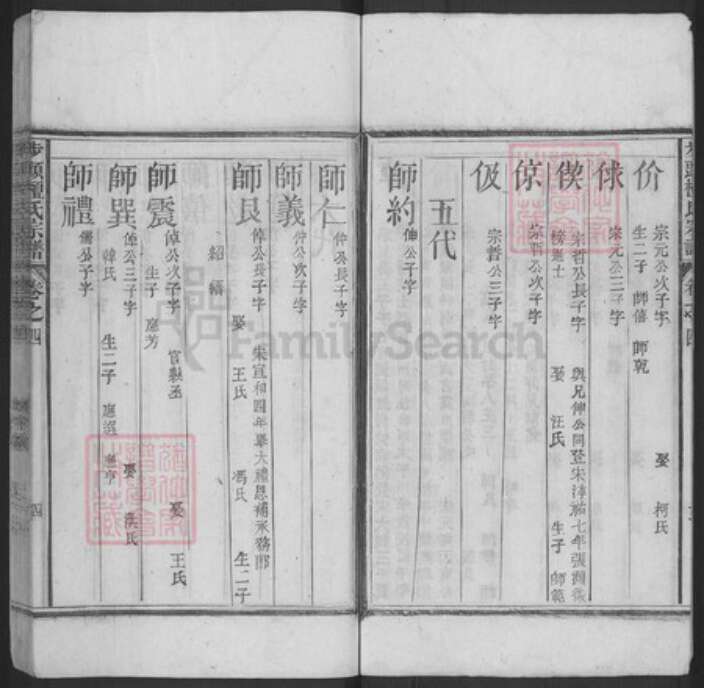 价
宗元公次子字
生二子 師僖 師乾
娶 柯氏
俅
宗元公三子字
偰
宗哲公長子字
與兄伸公同登宋淳祐七年張淵微
榜進士
娶 汪氏
生子 師範
倞
宗哲公次子字
伋
宗哲公三子字
五代
師約
伸公子字
師仁
仲公長子字
師義
仲公次子字
師良
倬公長子字
宋宣和四年舉大禮恩補承務郎
娶 王氏 馮氏 生二子
紹 縉
師震
倬公次子字 官縣丞 娶 王氏
生子 應芳
師巽
倬公三子字 娶 洪氏
韓氏 生二子 應選 應亨
師禮
儒公子字
卷之四
四
FamilySearch